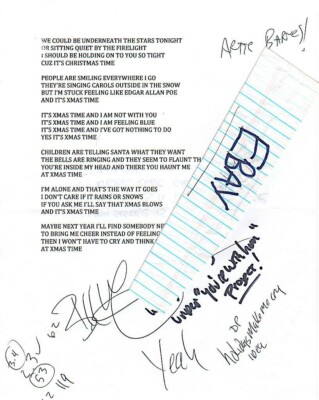 WE COULD BE UNDERNEATH THE STARS TONIGHT
OR SITTING QUIET BY THE FIRELIGHT
I SHOULD BE HOLDING ON TO YOU SO TIGHT
CUZ IT'S CHRISTMAS TIME
PEOPLE ARE SMILING EVERYWHERE I GO
THEY'RE SINGING CAROLS OUTSIDE IN THE SNOW
BUT I'M STUCK FEELING LIKE EDGAR ALLAN POE
AND IT'S XMAS TIME
IT'S XMAS TIME AND I AM NOT WITH YOU
IT'S XMAS TIME AND I AM FEELING BLUE
IT'S XMAS TIME AND I'VE GOT NOTHING TO DO
YES IT'S XMAS TIME
CHILDREN ARE TELLING SANTA WHAT THEY WANT
THE BELLS ARE RINGING AND THEY SEEM TO FLAUNT
YOU'RE INSIDE MY HEAD AND THERE YOU HAUNT ME
AT XMAS TIME
I'M ALONE AND THAT'S THE WAY IT GOES
I DON'T CARE IF IT RAINS OR SNOWS
IF YOU ASK ME I'LL SAY THAT XMAS BLOWS
AND IT'S XMAS TIME
MAYBE NEXT YEAR I'LL FIND SOMEBODY
TO BRING ME CHEER INSTEAD OF FEELING
THEN I WON'T HAVE TO CRY AND THINK
AT XMAS TIME
EBAY
under "you're with him"
project!
Yeah
DP
holidays make me cry